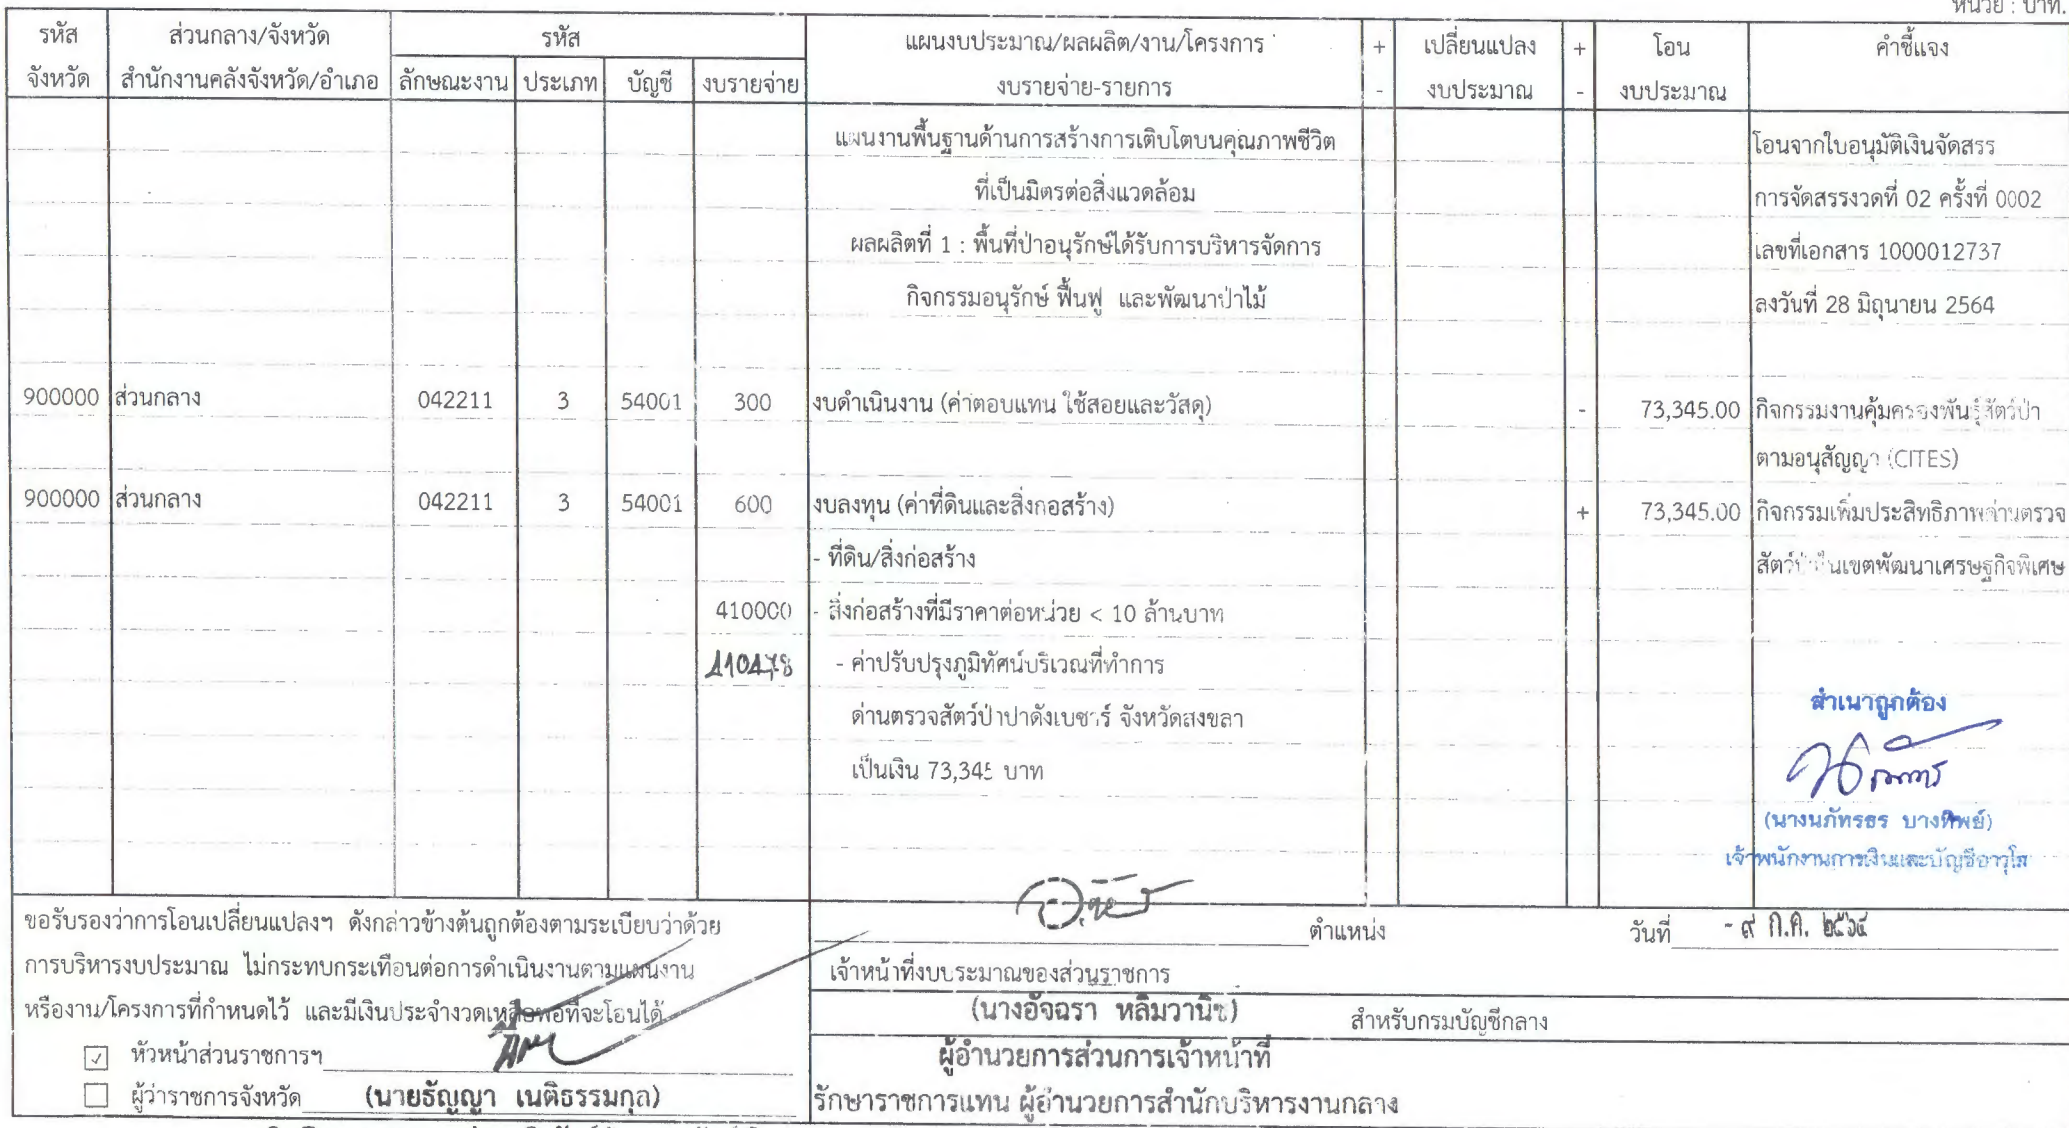 หน่วย : บาท.
รหัส ส่วนกลาง/จังหวัด รหัส แผนงบประมาณ/ผลผลิต/งาน/โครงการ + เปลี่ยนแปลง + โอน คำชี้แจง
จังหวัด สำนักงานคลังจังหวัด/อำเภอ ลักษณะงาน ประเภท บัญชี งบรายจ่าย งบรายจ่าย-รายการ - งบประมาณ - งบประมาณ
แผนงานพื้นฐานด้านการสร้างการเติบโตบนคุณภาพชีวิต โอนจากใบอนุมัติเงินจัดสรร
ที่เป็นมิตรต่อสิ่งแวดล้อม การจัดสรรงวดที่ 02 ครั้งที่ 0002
ผลผลิตที่ 1 : พื้นที่ป่าอนุรักษ์ได้รับการบริหารจัดการ เลขที่เอกสาร 1000012737
กิจกรรมอนุรักษ์ ฟื้นฟู และพัฒนาป่าไม้ ลงวันที่ 28 มิถุนายน 2564
900000 ส่วนกลาง 042211 3 54001 300 งบดำเนินงาน (ค่าตอบแทน ใช้สอยและวัสดุ) - 73,345.00 กิจกรรมงานคุ้มครองพันธุ์สัตว์ป่า
ตามอนุสัญญา (CITES)
900000 ส่วนกลาง 042211 3 54001 600 งบลงทุน (ค่าที่ดินและสิ่งกอสร้าง) + 73,345.00 กิจกรรมเพิ่มประสิทธิภาพด่านตรวจ
- ที่ดิน/สิ่งก่อสร้าง สัตว์ป่าในเขตพัฒนาเศรษฐกิจพิเศษ
410000 - สิ่งก่อสร้างที่มีราคาต่อหน่วย < 10 ล้านบาท
410478 - ค่าปรับปรุงภูมิทัศน์บริเวณที่ทำการ
ด่านตรวจสัตว์ป่าปาดังเบซาร์ จังหวัดสงขลา
เป็นเงิน 73,345 บาท
สำเนาถูกต้อง
(นางนภัทรธร บางทิพย์)
เจ้าพนักงานการเงินและบัญชีอาวุโส
ขอรับรองว่าการโอนเปลี่ยนแปลงฯ ดังกล่าวข้างต้นถูกต้องตามระเบียบว่าด้วย
การบริหารงบประมาณ ไม่กระทบกระเทือนต่อการดำเนินงานตามแผนงาน
หรืองาน/โครงการที่กำหนดไว้ และมีเงินประจำงวดเหลือพอที่จะโอนได้
หัวหน้าส่วนราชการฯ
ผู้ว่าราชการจังหวัด (นายธัญญา เนติธรรมกุล)
ตำแหน่ง วันที่ - ๙ ก.ค. ๒๕๖๔
เจ้าหน้าที่งบประมาณของส่วนราชการ
(นางอัจฉรา หลิมวานิช) สำหรับกรมบัญชีกลาง
ผู้อำนวยการส่วนการเจ้าหน้าที่
รักษาราชการแทน ผู้อำนวยการสำนักบริหารงานกลาง